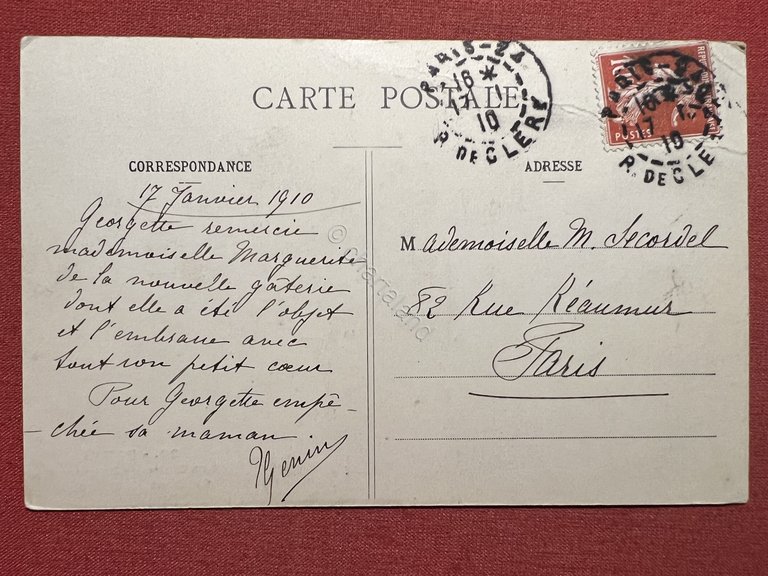 CARTE POSTALE
CORRESPONDANCE
17 Janvier 1910
Georgette remercie
mademoiselle Marguerite
de la nouvelle gâterie
dont elle a été l'objet
et l'embrasse avec
tout son petit cœur
Pour Georgette empê-
chée sa maman
ADRESSE
Mademoiselle M. Secordel
82 Rue Réaumur
Paris
PARIS-24
16 *
17 - 1
10
R. DE CLERY
POSTES
PARIS-24
16 *
17 - 1
10
R. DE CLERY
© Chartaland